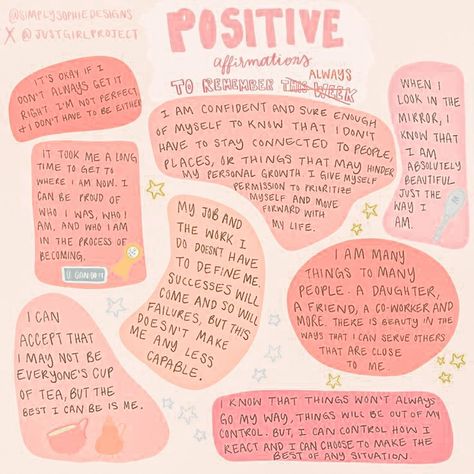 @SIMPLYSOPHIEDESIGNS
X @JUSTGIRLPROJECT
POSITIVE
affirmations
ALWAYS
TO REMEMBER THIS WEEK
IT'S OKAY IF I
DON'T ALWAYS GET IT
RIGHT. I'M NOT PERFECT
& I DON'T HAVE TO BE EITHER
I AM CONFIDENT AND SURE ENOUGH
OF MYSELF TO KNOW THAT I DON'T
HAVE TO STAY CONNECTED TO PEOPLE,
PLACES, OR THINGS THAT MAY HINDER
MY PERSONAL GROWTH. I GIVE MYSELF
PERMISSION TO PRIORITIZE
MYSELF AND MOVE
FORWARD WITH
MY LIFE.
WHEN I
LOOK IN THE
MIRROR, I
KNOW THAT
I AM
ABSOLUTELY
BEAUTIFUL
JUST THE
WAY I
AM.
IT TOOK ME A LONG
TIME TO GET TO
WHERE I AM NOW. I
CAN BE PROUD OF
WHO I WAS, WHO I
AM, AND WHO I AM
IN THE PROCESS OF
BECOMING.
MY JOB AND
THE WORK I
DO DOESN'T HAVE
TO DEFINE ME.
SUCCESSES WILL
COME AND SO WILL
FAILURES, BUT THIS
DOESN'T MAKE
ME ANY LESS
CAPABLE.
I AM MANY
THINGS TO MANY
PEOPLE. A DAUGHTER,
A FRIEND, A CO-WORKER AND
MORE. THERE IS BEAUTY IN THE
WAYS THAT I CAN SERVE OTHERS
THAT ARE CLOSE
TO ME.
I CAN
ACCEPT THAT
I MAY NOT BE
EVERYONE'S CUP
OF TEA, BUT THE
BEST I CAN BE IS ME.
I KNOW THAT THINGS WON'T ALWAYS
GO MY WAY, THINGS WILL BE OUT OF MY
CONTROL. BUT, I CAN CONTROL HOW I
REACT AND I CAN CHOOSE TO MAKE THE
BEST OF ANY SITUATION.